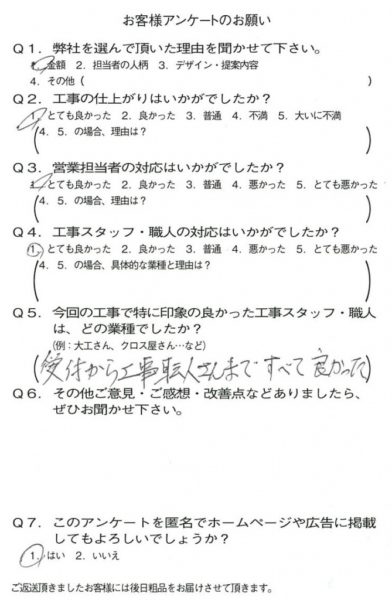 お客様アンケートのお願い
Q1. 弊社を選んで頂いた理由を聞かせて下さい。
1. 金額 2. 担当者の人柄 3. デザイン・提案内容
4. その他( )
Q2. 工事の仕上がりはいかがでしたか?
1. とても良かった 2. 良かった 3. 普通 4. 不満 5. 大いに不満
(4. 5. の場合、理由は? )
Q3. 営業担当者の対応はいかがでしたか?
1. とても良かった 2. 良かった 3. 普通 4. 悪かった 5. とても悪かった
(4. 5. の場合、理由は? )
Q4. 工事スタッフ・職人の対応はいかがでしたか?
1. とても良かった 2. 良かった 3. 普通 4. 悪かった 5. とても悪かった
(4. 5. の場合、具体的な業種と理由は? )
Q5. 今回の工事で特に印象の良かった工事スタッフ・職人
は、どの業種でしたか?
(例:大工さん、クロス屋さん…など)
(受付から工事職人さんまで すべて 良かった)
Q6. その他ご意見・ご感想・改善点などありましたら、
ぜひお聞かせ下さい。
Q7. このアンケートを匿名でホームページや広告に掲載
してもよろしいでしょうか?
1. はい 2. いいえ
ご返送頂きましたお客様には後日粗品をお届けさせて頂きます。